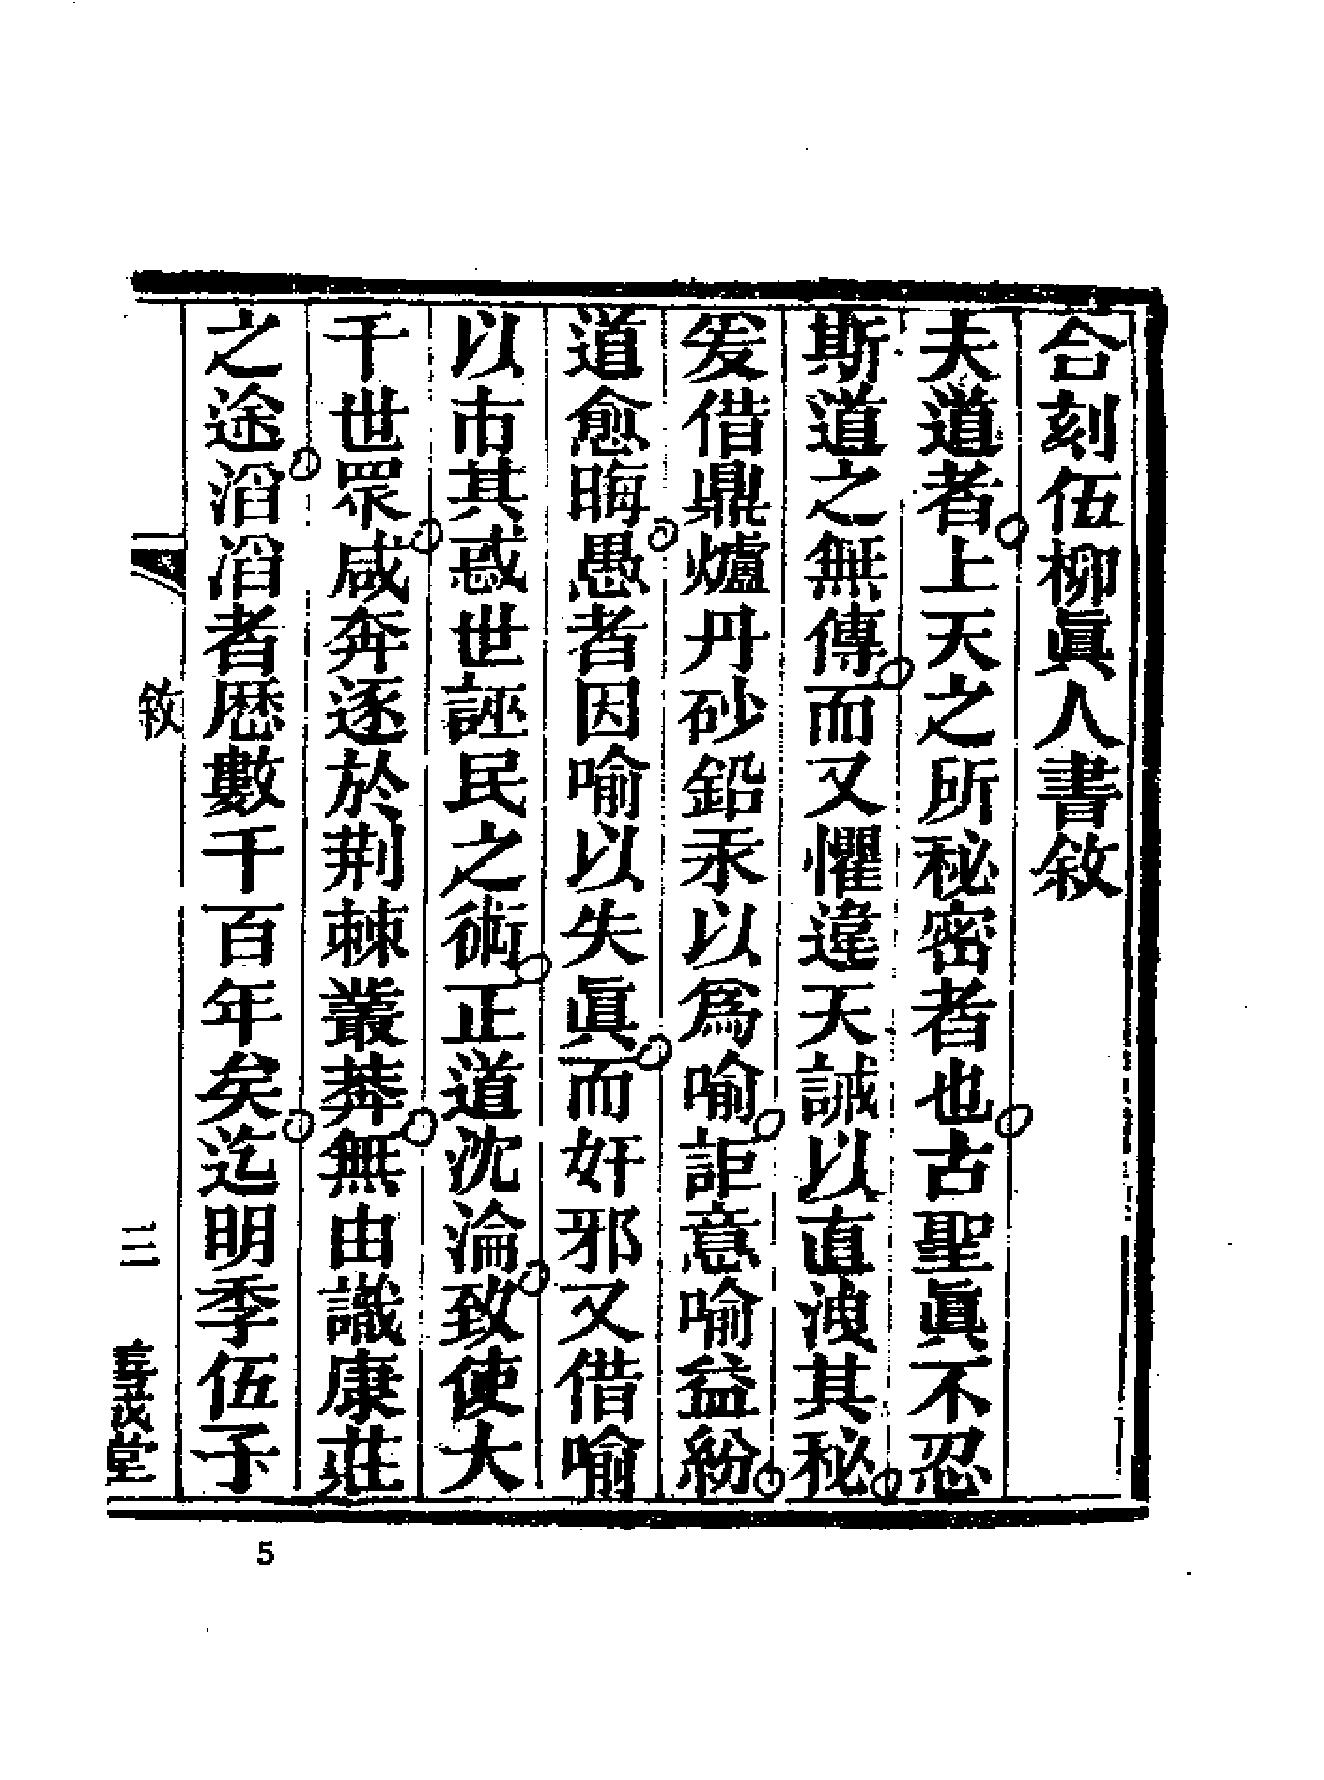 合刻伍柳眞人書敘
夫道者上天之所秘密者也古聖眞不忍
斯道之無傳而又懼違天誡以直洩其秘
爰借鼎爐丹砂鉛汞以爲喻詎意喻益紛
道愈晦愚者因喻以失眞而奸邪又借喻
以市其惑世誣民之術正道沈淪致使大
千世眾咸奔逐於荆棘叢莽無由識康莊
之途滔滔者歷數千百年矣迄明季伍子
敘
二
堂
5